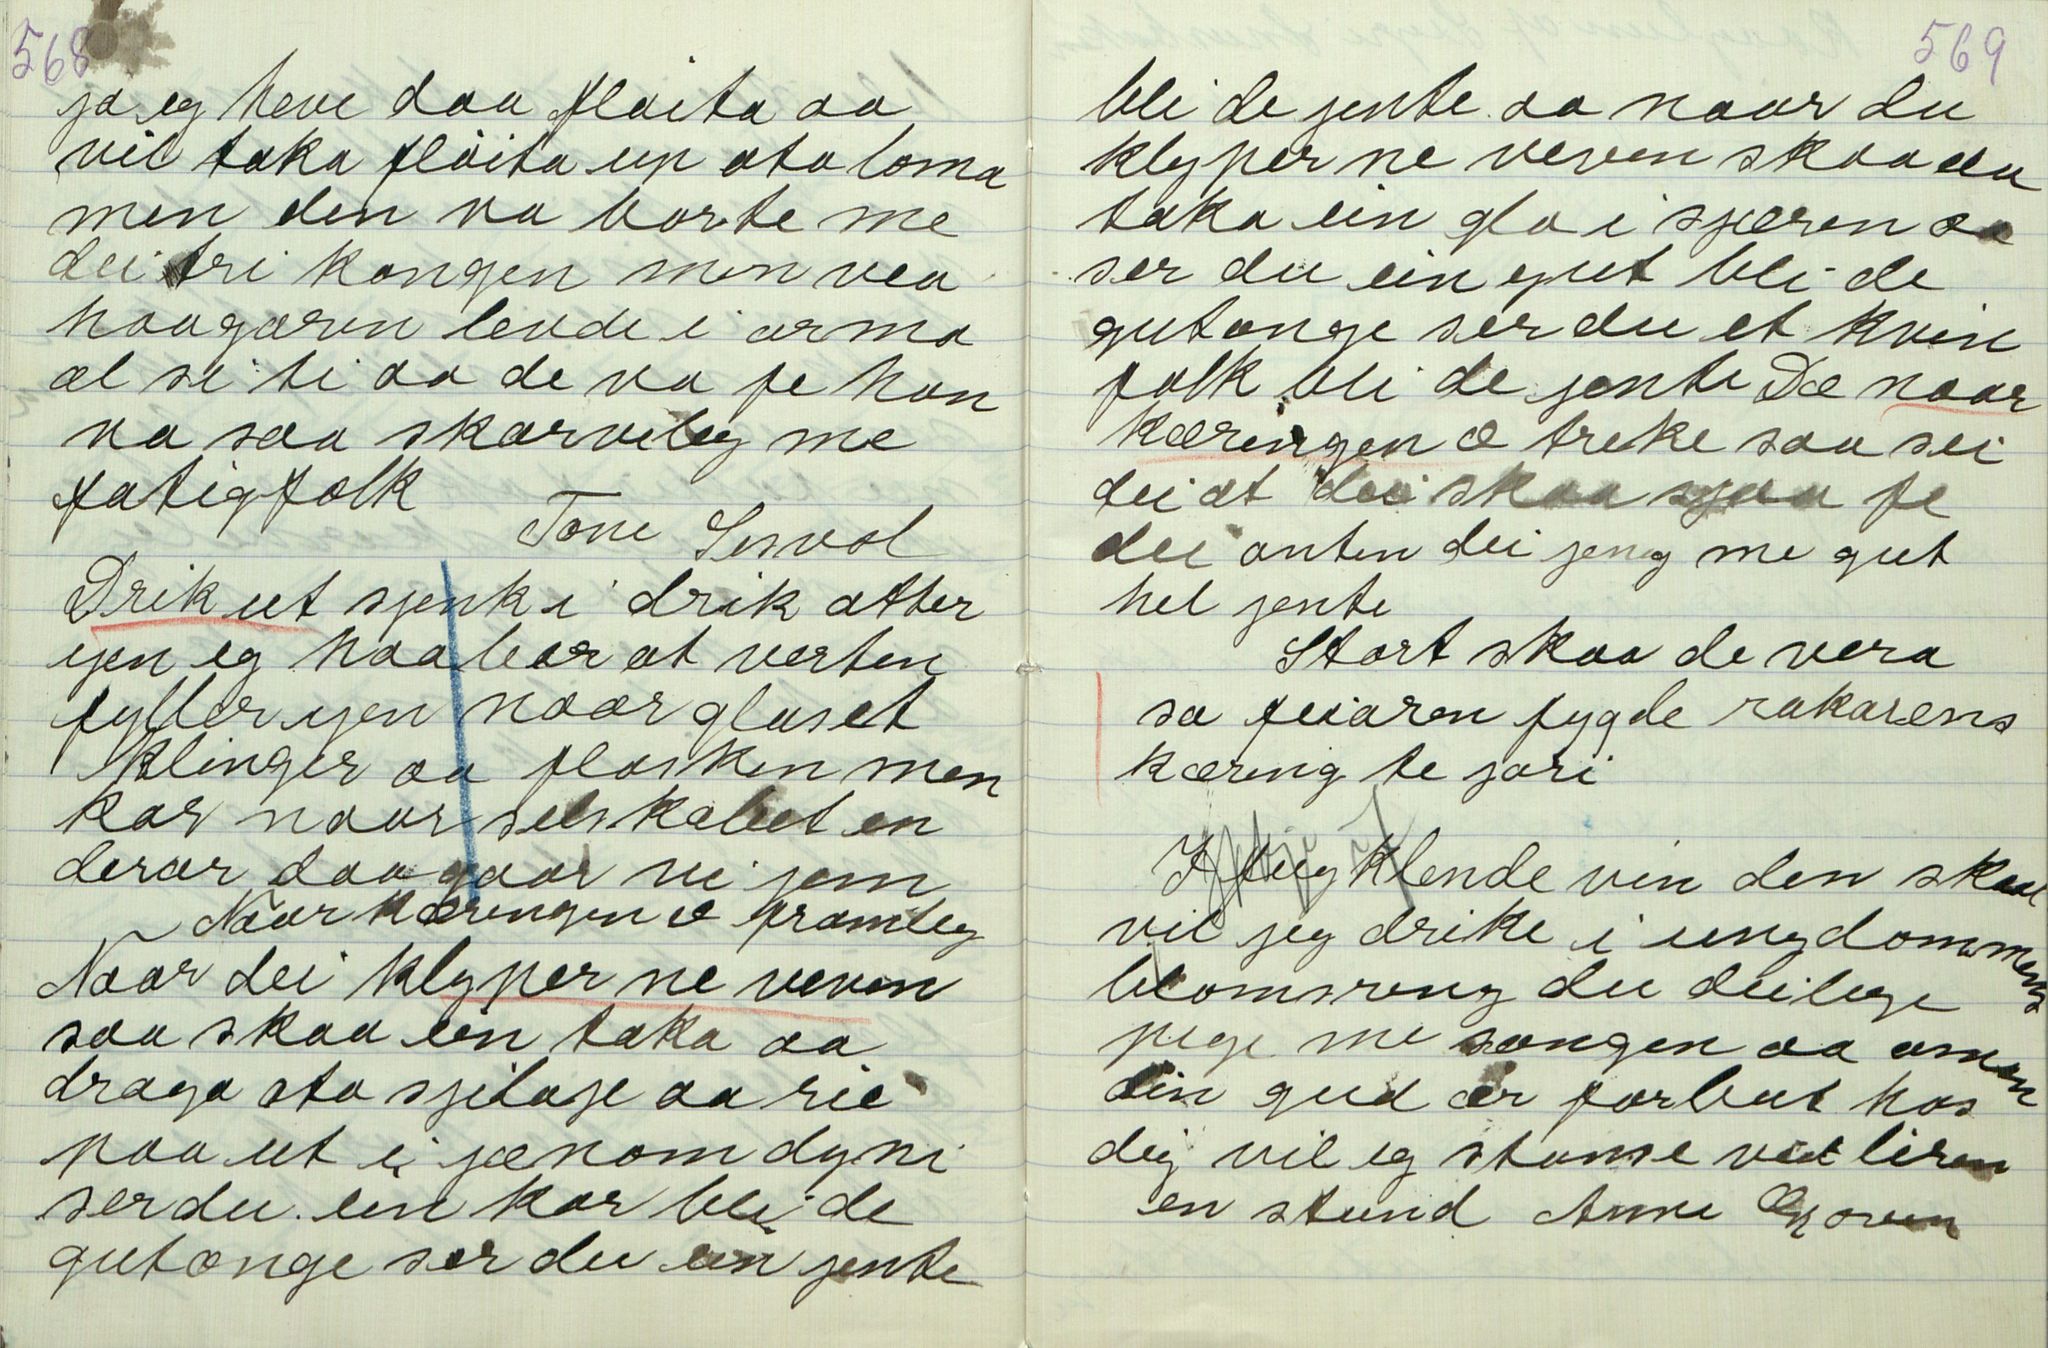 568
ja eg heve daa fløita aa
vil taka fløita up ata loma
men den va borte me
dei tri kongen men vea
haagaren levde i arma
al si ti aa de va fe han
va saa skarveleg me
fatigfolk
Tone
Drik ut sjenk i drik atter
ijen eg haabear at verten
fylder ijen naar glaset
klinger aa flasken men
kar naar selskabet en
derar daa gaar vi jem
Naar kæringen æ framleg
Naar dei klyper ne veven
saa skaa ein taka aa
draga ata sjilaje aa rie
paa ut i jænom dyni
ser du ein kar bli de
gutonge ser du ein jente
569
bli de jente aa naar du
klyper ne veven skaa du
taka ein glo i sjæren aa
ser du ein gut bli de
gutonge ser du et kvin
folk bli de jente Dæ naar
kæringen æ treke saa sei
dei at dei skaa sjaa fe
dei anten dei jeng me gut
hel jente
Stort skaa de vera
sa feiaren fygde rakarens
kæring te jori
klende vin den skaal
vil jeg drike i ungdommens
blomsreng du deilege
pege me sangen aa amen
din gud er forbut hos
dig vil eg stanse ved liren
en stund Anne